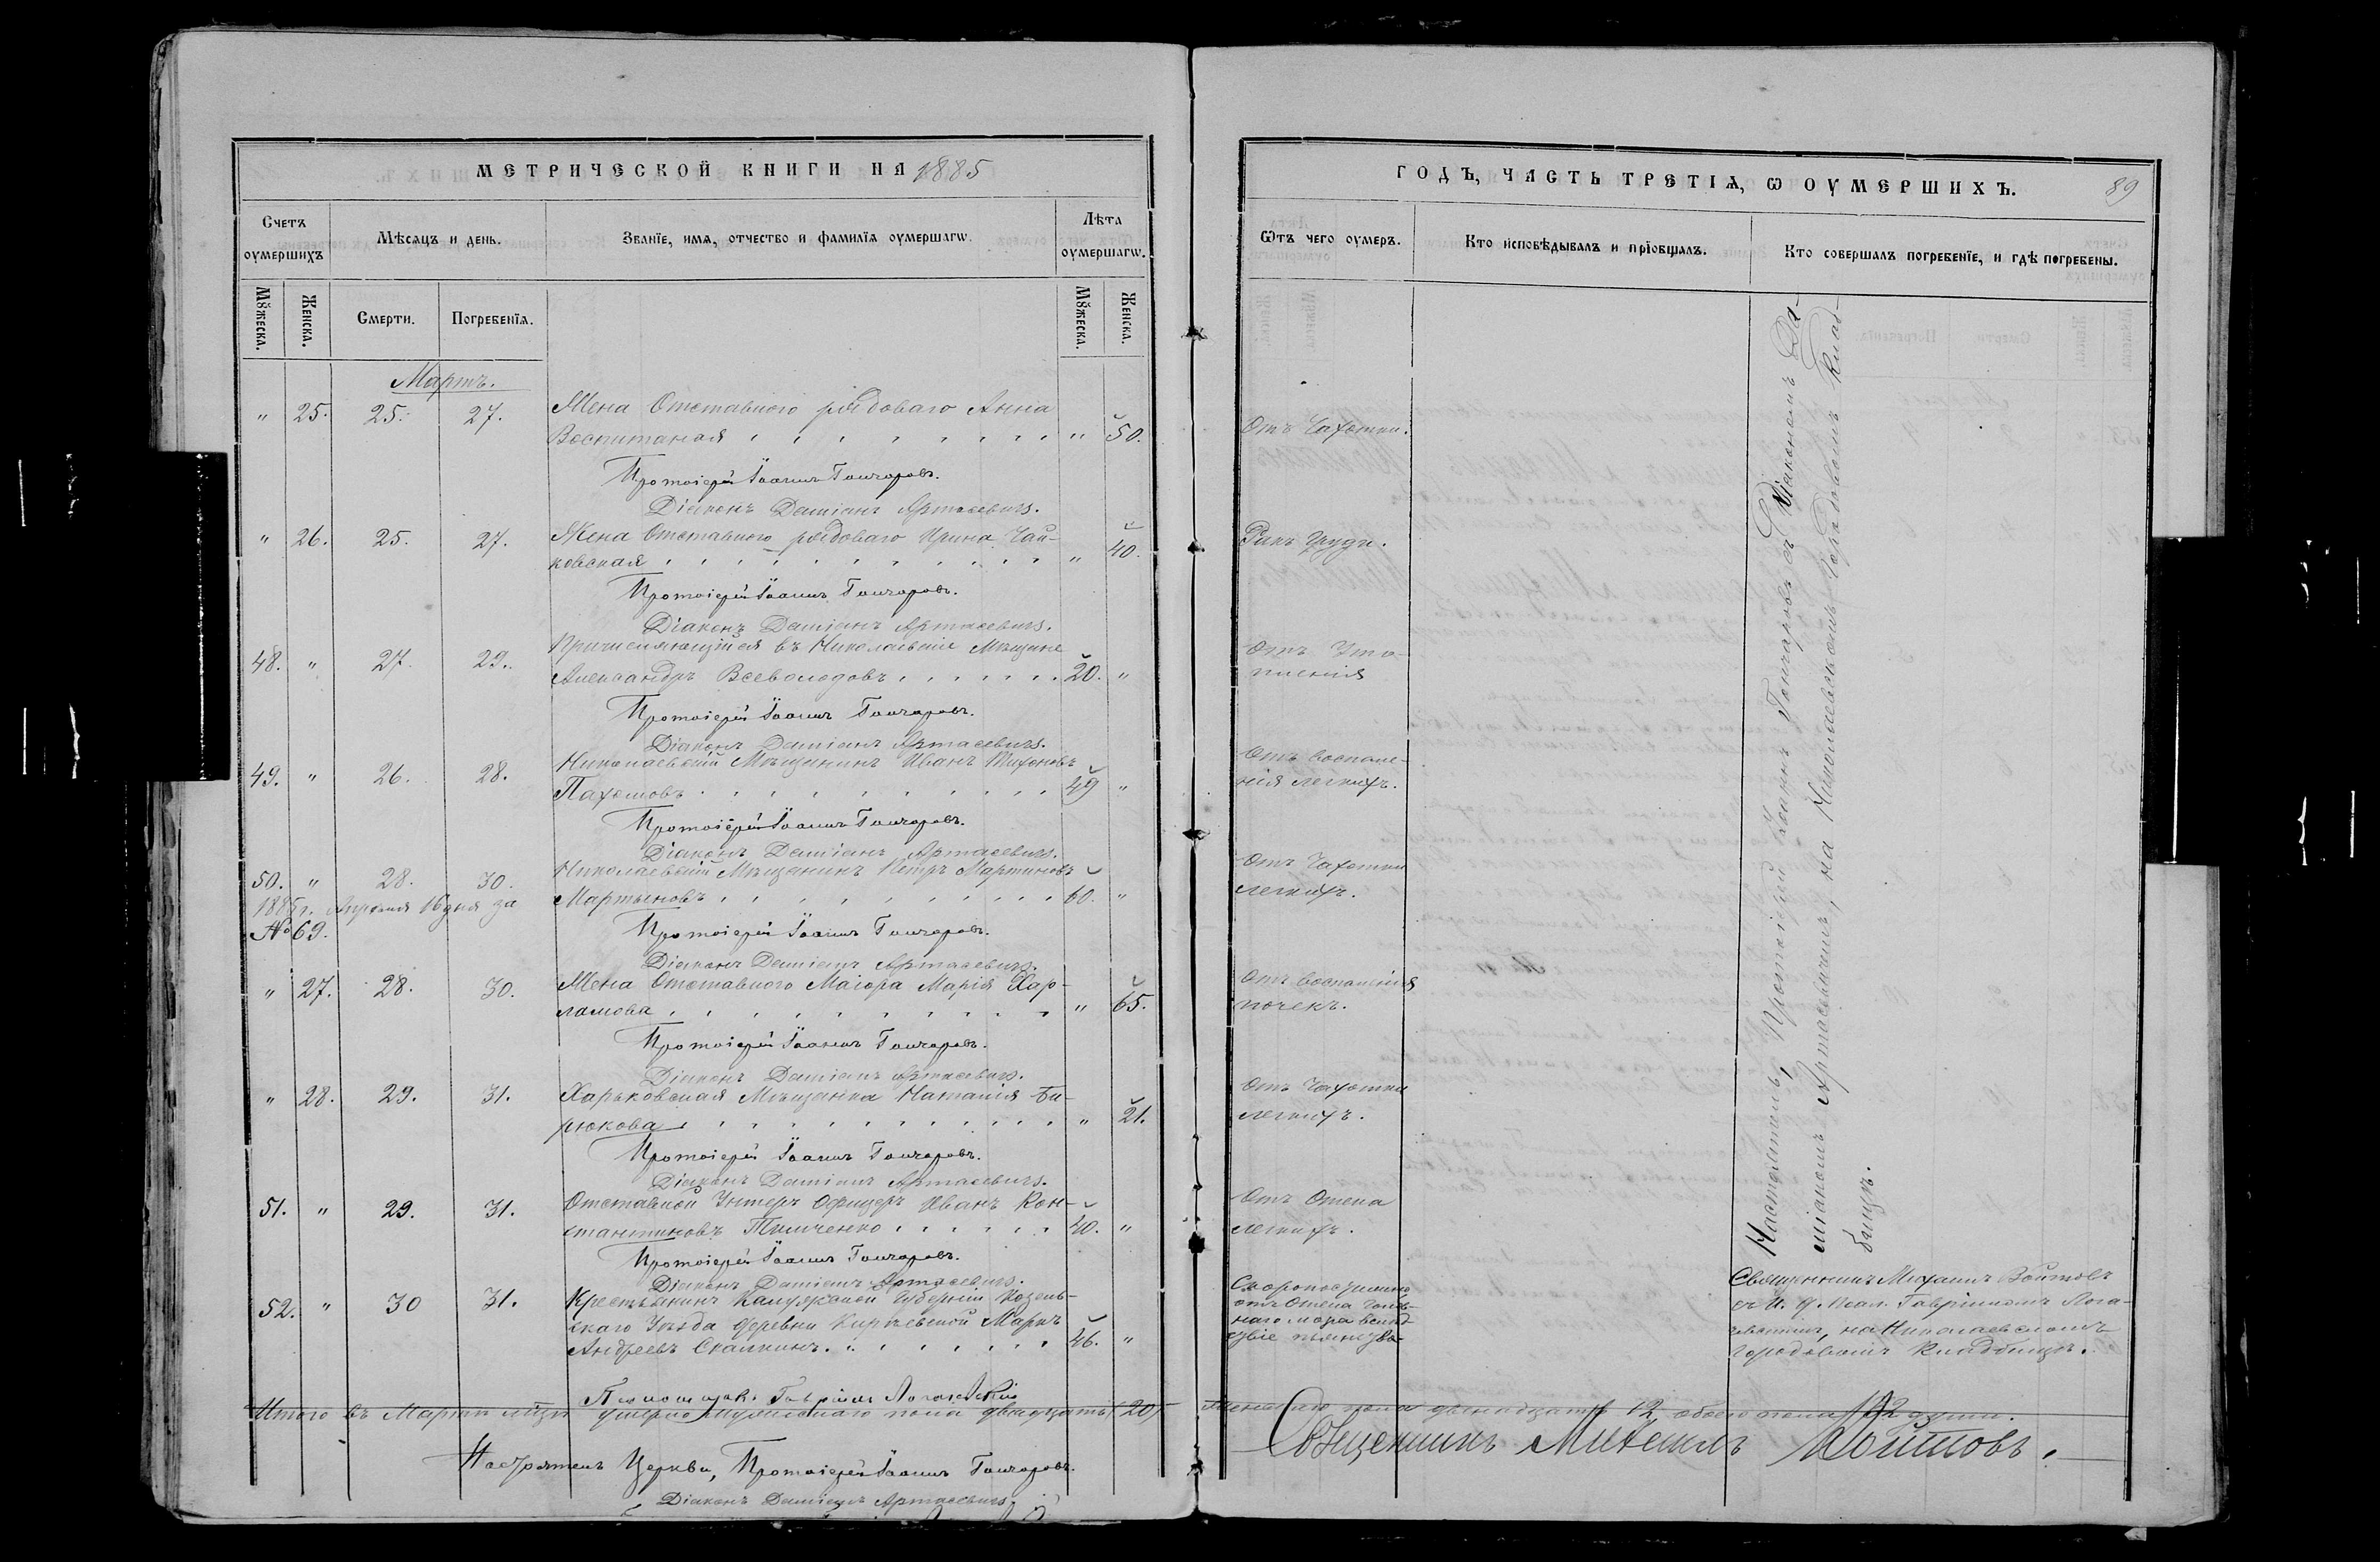 МЕТРИЧЕСКОЙ КНИГИ НА 1885
Счетъ оумершихъ
Мѣсяцъ и день.
Званіе, имя, отчество и фамилія оумершагѡ.
Лѣта оумершагѡ.
Мꙋжеска.
Женска.
Смерти.
Погребенїя.
Мꙋжеска.
Женска.
Мартъ.
" 25. 25. 27. Жена Отставного рядоваго Анна
" 50.
Протоіерей Іоаннъ Гончаровъ.
Діаконъ Даміанъ Артасевичъ.
" 26. 25. 27. Жена Отставного рядоваго Ирина Чай-
ковская " 40.
Протоіерей Іоаннъ Гончаровъ.
Діаконъ Даміанъ Артасевичъ.
48. " 27. 29. Причисляющійся въ Николаевскіе Мѣщане
Александръ Всеволодовъ 20. "
Протоіерей Іоаннъ Гончаровъ.
Діаконъ Даміанъ Артасевичъ.
49. " 26. 28. Николаевскій Мѣщанинъ Иванъ Тихоновъ
Пахомовъ 49 "
Протоіерей Іоаннъ Гончаровъ.
Діаконъ Даміанъ Артасевичъ.
50. " 28. 30. Николаевскій Мѣщанинъ Петръ Мартиновъ
1885 г. Апрѣля 16 дня за Мартыновъ 60. "
№ 69.
Протоіерей Іоаннъ Гончаровъ.
Діаконъ Даміанъ Артасевичъ.
" 27. 28. 30. Жена Отставного Маіора Марія Хар-
ламова " 65.
Протоіерей Іоаннъ Гончаровъ.
Діаконъ Даміанъ Артасевичъ.
" 28. 29. 31. Харьковская Мѣщанка Наталія Би-
рюкова " 21.
Протоіерей Іоаннъ Гончаровъ.
Діаконъ Даміанъ Артасевичъ.
51. " 29. 31. Отставной Унтеръ Офицеръ Иванъ Кон-
стантиновъ Тимченко 40. "
Протоіерей Іоаннъ Гончаровъ.
Діаконъ Даміанъ Артасевичъ.
52. " 30 31. Крестьянинъ Калужской Губерніи Козель-
скаго Уѣзда деревни Маркъ
Андреевъ Скалкинъ. 46. "
Псаломщикъ Гавріилъ
Итого въ Мартѣ м-цѣ умерло мужескаго пола двадцать (20)
Настоятель Церкви, Протоіерей Іоаннъ Гончаровъ.
Діаконъ Даміанъ Артасевичъ.
ГОДЪ, ЧАСТЬ ТРЕТІЯ, Ѡ ОУМЕРШИХЪ.
89
Ѿтъ чего оумеръ.
Кто исповѣдывалъ и прїобщалъ.
Кто совершалъ погребенїе, и гдѣ погребены.
Отъ Чахотки.
Ракъ груди.
Отъ Уто-
пленія
Отъ воспале-
нія легкихъ.
Отъ Чахотки
легкихъ.
Отъ воспаленія
почекъ.
Отъ Чахотки
легкихъ.
Отъ Отека
легкихъ.
Скоропостижно
отъ Отека голов-
наго мозга вслѣд-
ствіе пьянства
Настоятель, Протоіерей Іоаннъ Гончаровъ съ Діакономъ Да-
міаномъ Артасевичемъ, на Николаевскомъ Городовомъ Клад-
бищѣ.
Священникъ Михаилъ Войтовъ
съ И. д. псал. Гавріиломъ Лога-
на Николаевскомъ
Городовомъ Кладбищѣ.
Женскаго пола двѣнадцать 12, обоего пола души.
Священникъ Михаилъ Войтовъ.